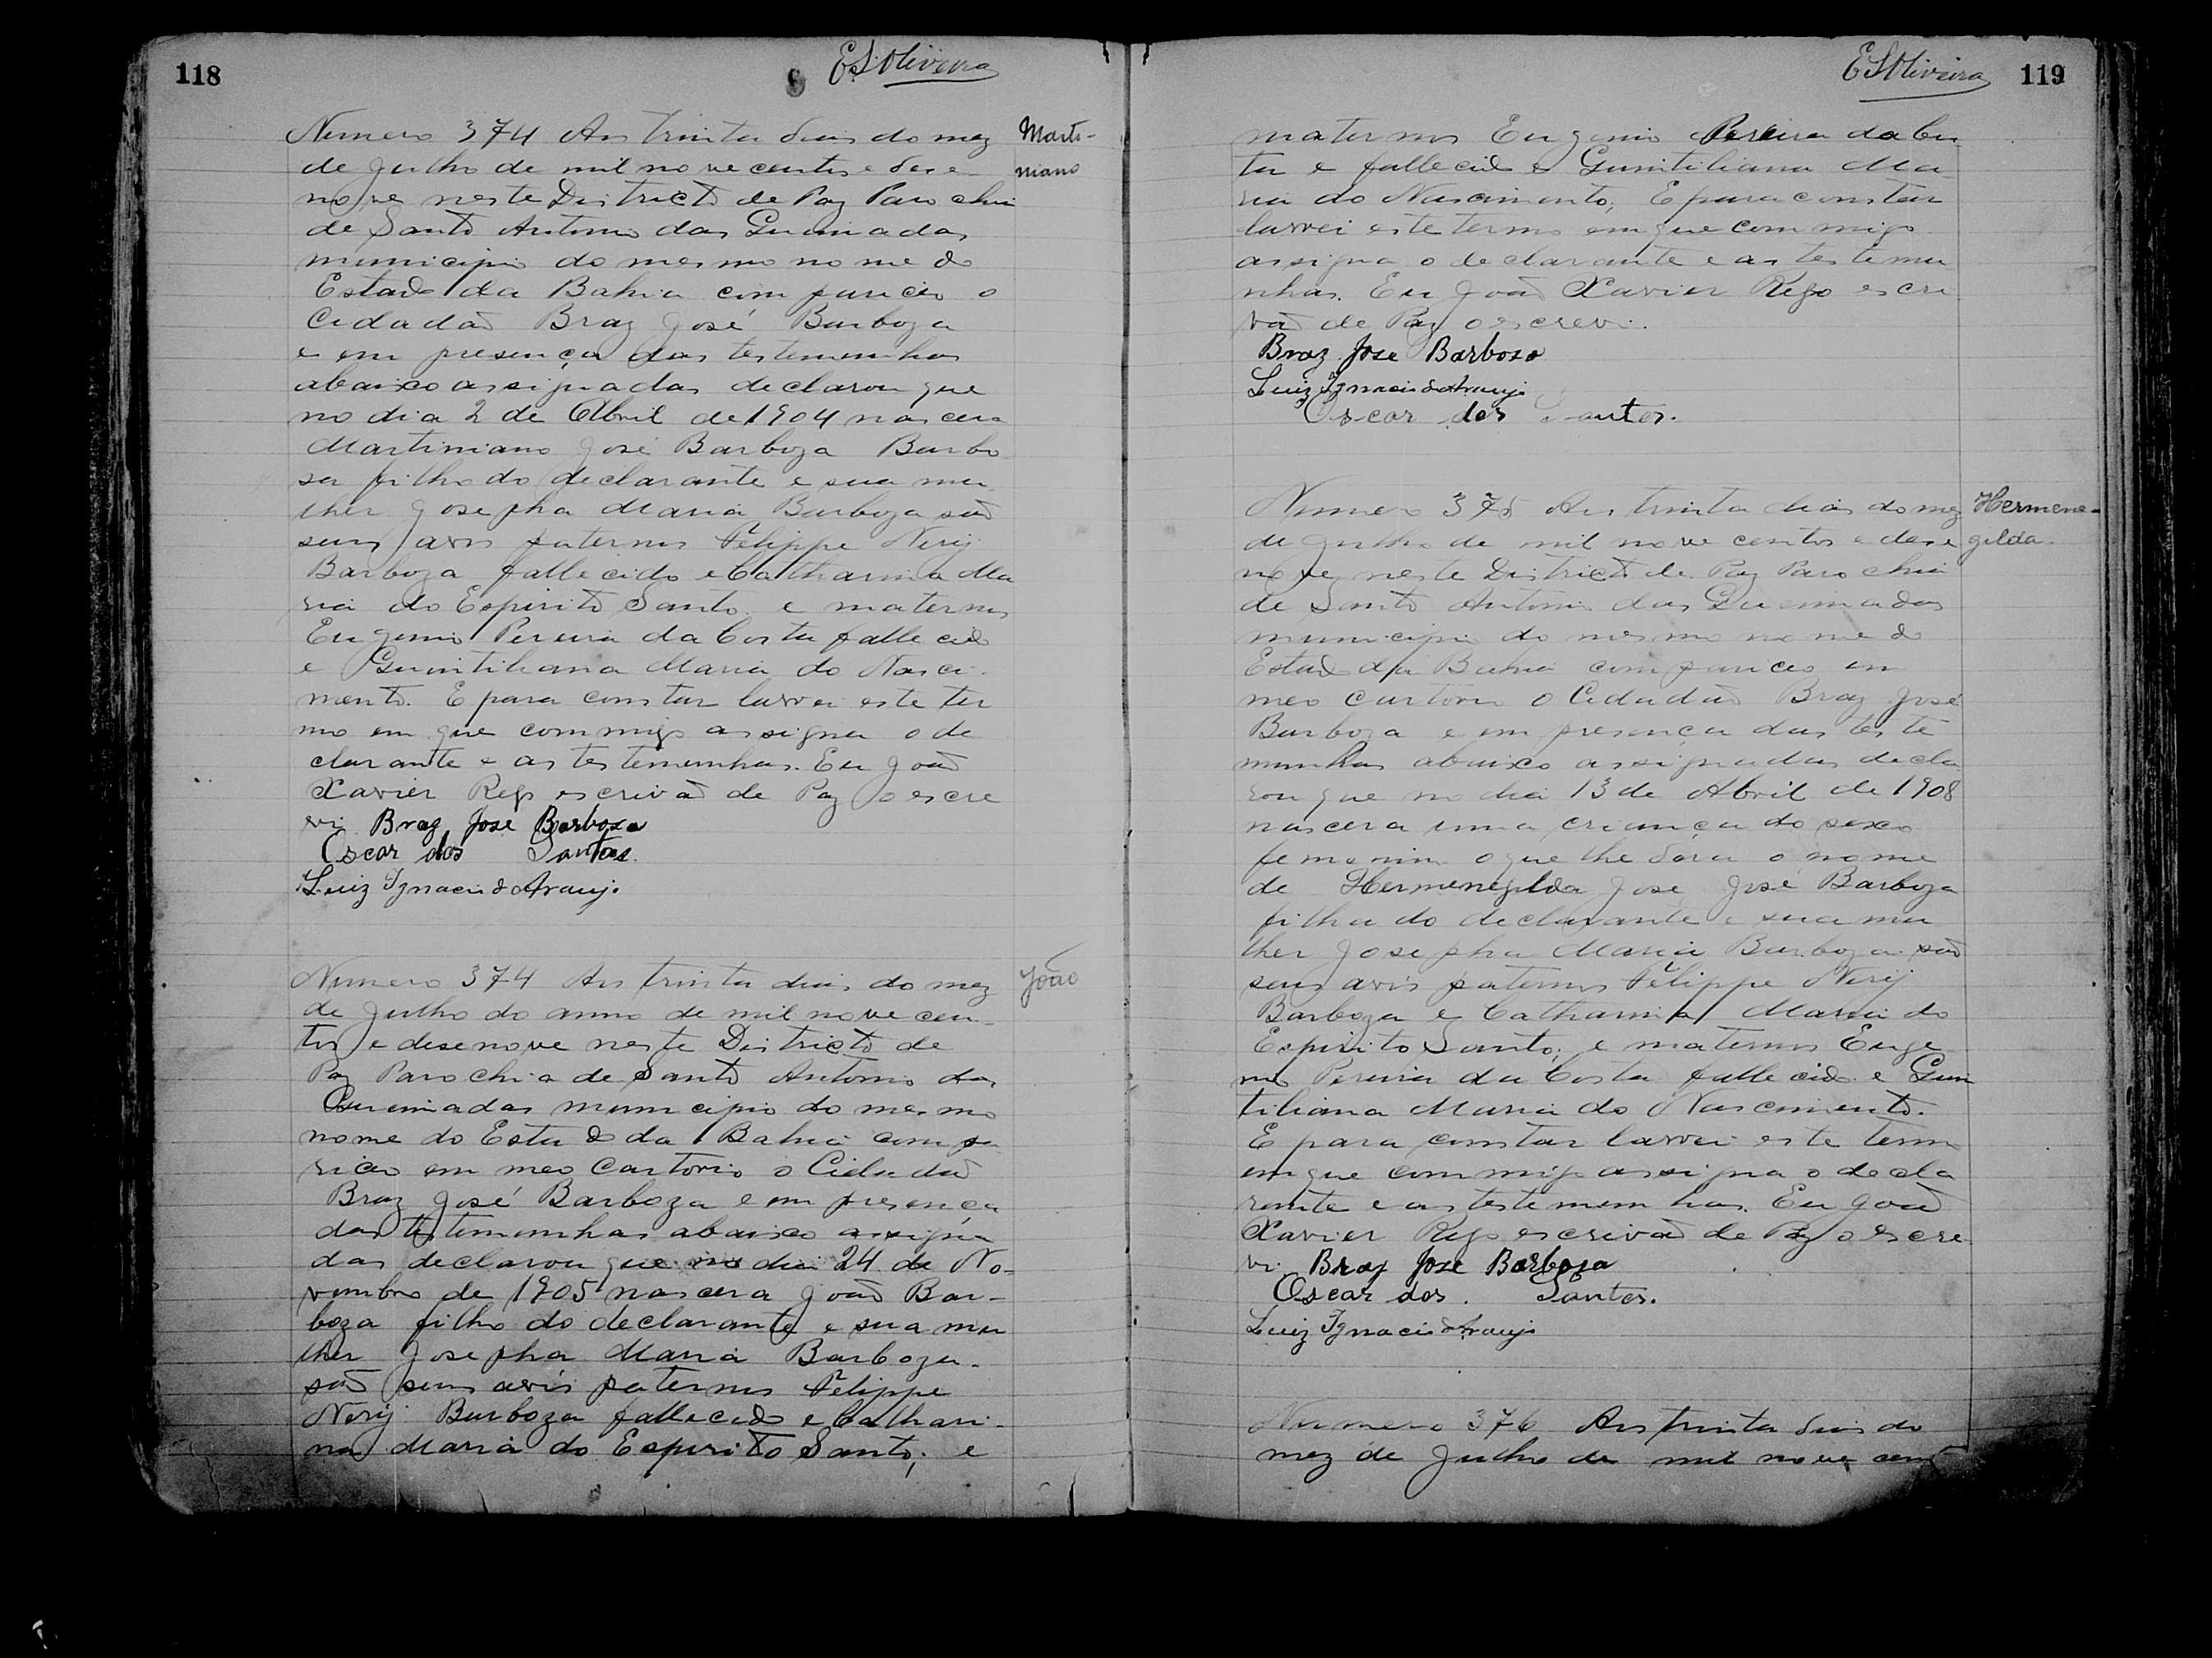 118
ESOliveira
Numero 374 Aos trinta dias do mez
de Julho de mil nove centos e dese
nove neste Districto de Paz Parochia
de Santo Antonio das Queimadas
municipio do mesmo nome do
Estado da Bahia compareceo o
Cidadão Braz José Barboza
e em presença das testemunhas
abaixo assignadas declarou que
no dia 2 de Abril de 1904 nascera
Martiniano José Barboza Barbo
sa filho do declarante e sua mu
lher Josepha Maria Barboza são
seus avós paternos Felippe Nerij
Barboza fallecido e Catharina Ma
ria do Espirito Santo e maternos
Eugenio Pereira da Costa fallecido
e Guintiliana Maria do Nasci
mento. E para constar lavrei este ter
mo em que commigo assigna o de
clarante e as testemunhas. Eu João
Xavier Rego escrivão de Paz o escre
vi Braz Jose Barbosa
Oscar dos Santos.
Luiz Ignacio d Araujo
Marti-
niano
Numero 374 Aos trinta dias do mez
de Julho do anno de mil nove cen-
tos e desenove neste Districto de
Paz Parochia de Santo Antonio das
Queimadas municipio do mesmo
nome do Estado da Bahia compa
riceo em meo Cartorio o Cidadão
Braz José Barboza e em presença
das testemunhas abaixo assigna
das declarou que no dia 24 de No-
vembro de 1905 nascera João Bar-
boza filho do declarante e sua mu
lher Josepha Maria Barboza.
são seus avós paternos Felippe
Nerij Barboza fallecido e Cathari-
na Maria do Espirito Santo; e
João
ESOliveira
119
maternos Eugenio Pereira da Cos
ta e fallecido e Guintiliana Ma
ria do Nascimento; E para constar
lavrei este termo em que commigo
assigna o declarante e as testemu
nhas. Eu João Xavier Rego escri
vão de Paz o escrevi.
Braz Jose Barbosa
Luiz Ignacio d Araujo
Oscar dos Santos.
Numero 375 Aos trinta dias do mez
de Julho de mil nove centos e dese
nove neste Districto de Paz Parochia
de Santo Antonio das Queimadas
municipio do mesmo nome do
Estado da Bahia compariceo em
meo cartorio o Cidadão Braz José
Barboza e em presença das teste
munhas abaixo assignadas decla
rou que no dia 13 de Abril de 1908
nascera uma criança do sexo
femenino o que lhe dera o nome
de Hermenegilda Jose José Barboza
filha do declarante e sua mu
lher Josepha Maria Barboza são
seus avós paternos Felippe Nerij
Barboza e Catharina Maria do
Espirito Santo; e maternos Euge
nio Pereira da Costa fallecido e Guin
tiliana Maria do Nascimento.
E para constar lavrei este termo
em que commigo assigna o decla
rante e as testemunhas. Eu João
Xavier Rego escrivão de Paz o escre
vi. Braz Jose Barbosa
Oscar dos. Santos.
Luiz Ignacio d Araujo
Hermene-
gilda
Numero 376 Aos trinta dias do
mez de Julho de mil nove cent